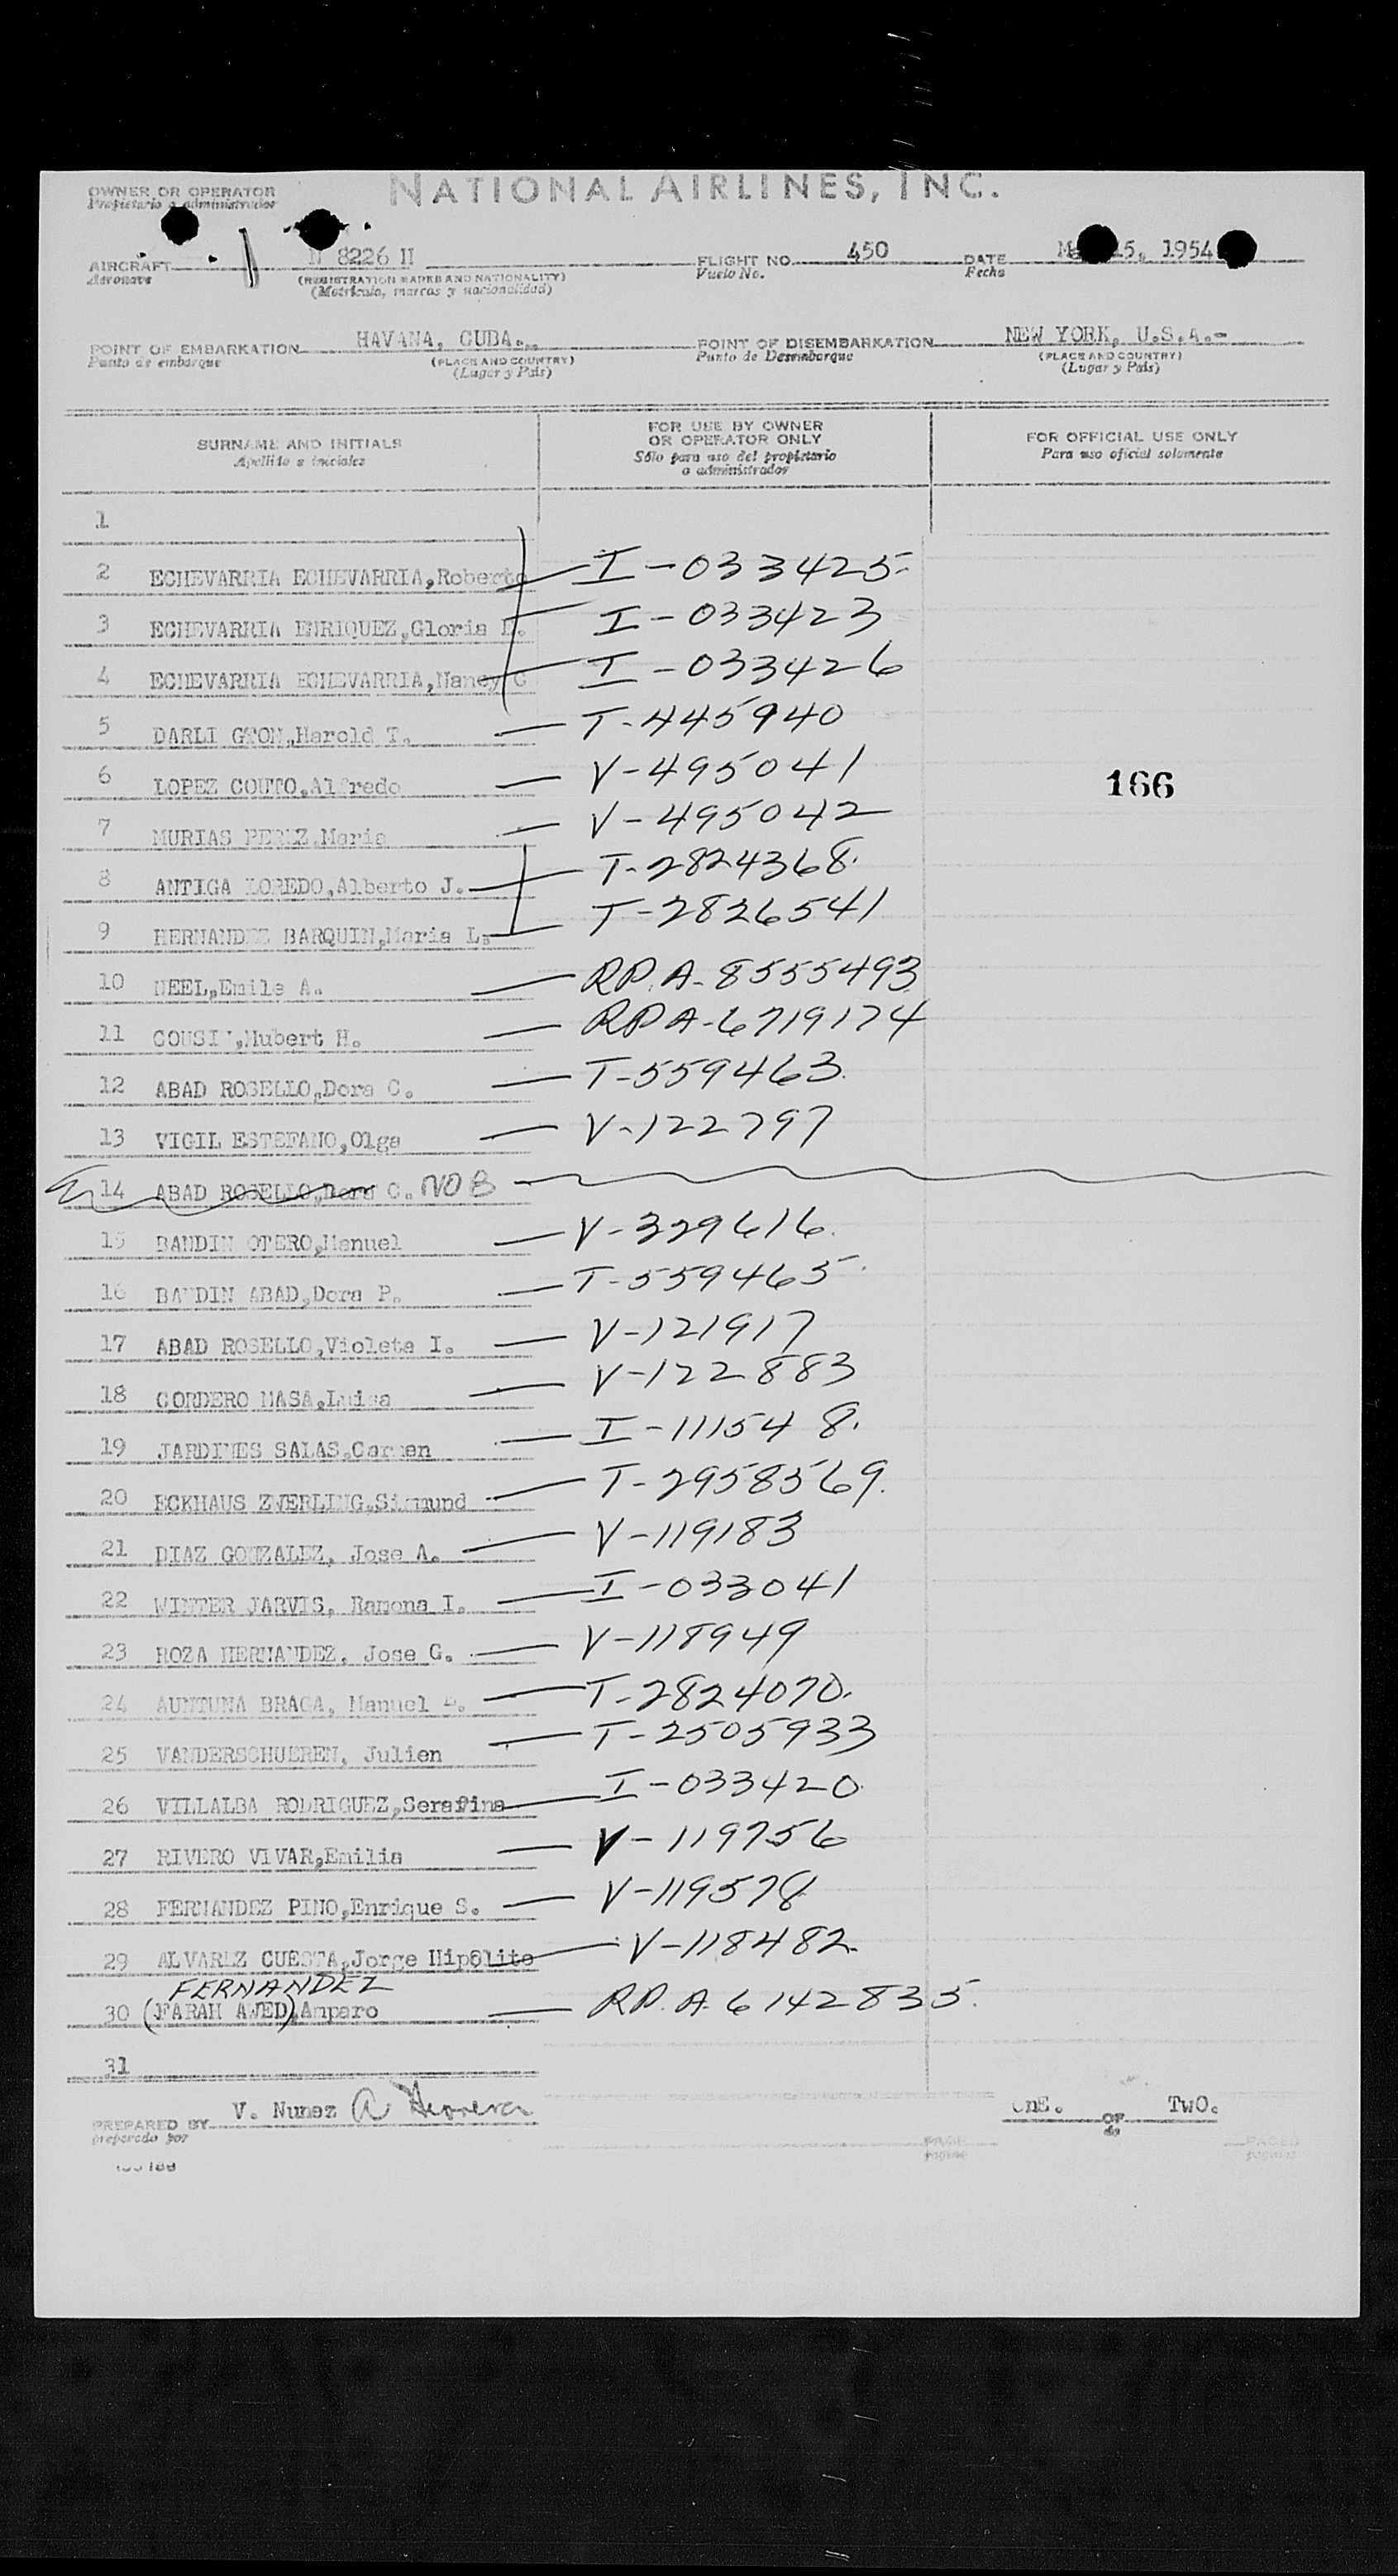 NATIONAL AIRLINES, INC.
OWNER OR OPERATOR
Propietario o administrador
AIRCRAFT N 8226 H FLIGHT NO. 450 DATE 15, 1954
Aeronave (REGISTRATION MARKS AND NATIONALITY) Vuelo No. Fecha
(Matricula, marcas y nacionalidad)
POINT OF EMBARKATION HAVANA, CUBA. POINT OF DISEMBARKATION NEW YORK, U.S.A.-
Punto de embarque (PLACE AND COUNTRY) Punto de Desembarque (PLACE AND COUNTRY)
(Lugar y País) (Lugar y País)
SURNAME AND INITIALS FOR USE BY OWNER OR OPERATOR ONLY FOR OFFICIAL USE ONLY
Apellido e iniciales Sólo para uso del propietario o administrador Para uso oficial solamente
1
2 ECHEVARRIA ECHEVARRIA,Roberto I-033425
3 ECHEVARRIA ENRIQUEZ,Gloria E. I-033423
4 ECHEVARRIA ECHEVARRIA,Nancy C I-033426
5 DARLI GTON,Harold T. T-445940
6 LOPEZ COUTO,Alfredo V-495041
166
7 MURIAS PEREZ,Maria V-495042
8 ANTIGA LOREDO,Alberto J. T-2824368.
9 HERNANDEZ BARQUIN,Maria L. T-2826541
10 NEEL,Emile A. RP.A-8555493
11 COUSIN,Hubert H. RPA-6719174
12 ABAD ROSELLO,Dora C. T-559463.
13 VIGIL ESTEFANO,Olga V-122797
14 ABAD ROSELLO,Dora C. NOB
15 BANDIN OTERO,Manuel V-329616.
16 BANDIN ABAD,Dora P. T-559465.
17 ABAD ROSELLO,Violeta I. V-121917
18 CORDERO MASA,Luisa V-122883
19 JARDINES SALAS,Carmen I-111548.
20 ECKHAUS ZWERLING,Sigmund T-2958569.
21 DIAZ GONZALEZ, Jose A. V-119183
22 WINTER JARVIS, Ramona I. I-033041
23 ROZA HERNANDEZ, Jose G. V-118949
24 AUNTUNA BRAGA, Manuel T-2824070.
25 VANDERSCHUEREN, Julien T-2505933
26 VILLALBA RODRIGUEZ,Serafina I-033420
27 RIVERO VIVAR,Emilia V-119756
28 FERNANDEZ PINO,Enrique S. V-119578
29 ALVAREZ CUESTA,Jorge Hipólito V-118482.
FERNANDEZ
30 (FARAH AWED),Amparo RP.A.6142835.
31
PREPARED BY V. Nunez A Herrera OnE. OF TwO.
preparado por de
PAGE PAGES